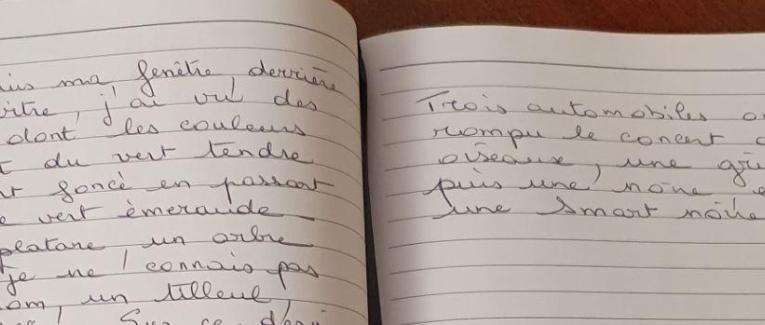 ma fenêtre, derrière
vitre, j'ai vu des
dont les couleurs
du vert tendre
foncé en passant
vert émeraude
platane un arbre
je ne connais pas
un tilleul,
Sur ce
Trois automobiles
rompu le concert
oiseaux, une
puis une noire
une Smart noire